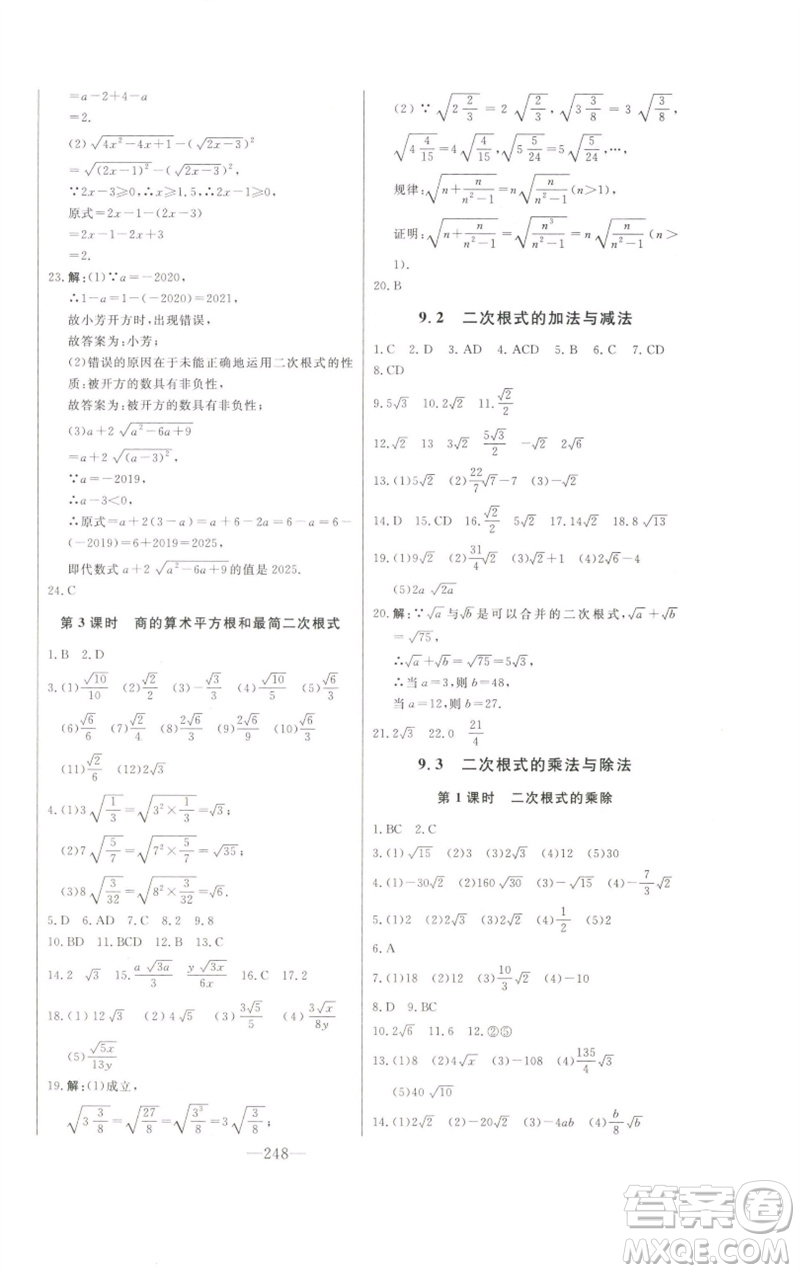 =a-2+4-a
=2.
(2)√(4x²-4x+1)-(√(2x-3))²
=√((2x-1)²)-(√(2x-3))²
∵2x-3≥0,∴x≥1.5,∴2x-1>0,
原式=2x-1-(2x-3)
=2x-1-2x+3
=2.
23.解:(1)∵a=-2020,
∴1-a=1-(-2020)=2021,
故小芳开方时,出现错误,
故答案为:小芳;
(2)错误的原因在于未能正确地运用二次根式的性
质:被开方的数具有非负性,
故答案为:被开方的数具有非负性;
(3)a+2√(a²-6a+9)
=a+2√((a-3)²),
∵a=-2019,
∴a-3<0,
∴原式=a+2(3-a)=a+6-2a=6-a=6-
(-2019)=6+2019=2025,
即代数式a+2√(a²-6a+9)的值是2025.
24.C
第3课时 商的算术平方根和最简二次根式
1.B 2.D
3.(1)√10/10 (2)√2/4 (3)-√6/3 (4)√10/5 (5)√3/3
(6)√6/6 (7)√2/4 (8)2√6/3 (9)2√6/3 (10)√6/3
(11)√2/6
4.(1)3√(1/3)=√(3²×1/3)=√3;
(2)7√(5/7)=√(7²×5/7)=√35;
(3)8√(3/32)=√(8²×3/32)=√6.
5.D 6.AD 7.C 8.2 9.8
10.BD 11.BCD 12.B 13.C
14.2 √3 15.a√(3a)/3 y√(3x)/6x 16.C 17.2
18.(1)12√3 (2)4√3 (3)3√5/5 (4)3√x/8y
(5)√(5x)/13y
19.解:(1)成立,
√(3 3/8)=√(27/8)=√(3³/8)=3√(3/8);
(2)∵√(2 2/3)=2√(2/3),√(3 3/8)=3√(3/8),
√(4 4/15)=4√(4/15),√(5 5/24)=5√(5/24),…,
规律:√(n+n/(n²-1))=n√(n/(n²-1))(n>1),
证明:√(n+n/(n²-1))=√(n³/(n²-1))=n√(n/(n²-1))(n>
1).
20.B
9.2 二次根式的加法与减法
1.C 2.D 3.AD 4.ACD 5.B 6.B 7.CD
8.CD
9.5√3 10.2√2 11.√2/2
12.√2 13 3√2 5√3/2 -√2 2√6
13.(1)5√2 (2)22/7√7-7 (3)-6√2
14.D 15.CD 16.√2/2 5√2 17.14√2 18.8√13
19.(1)9√2 (2)31/4√2 (3)√2+1 (4)2√2
(5)2a√(2a)
20.解:∵√a与√b是可以合并的二次根式,√a+√b
=√75,
∴√a+√b=√75=5√3,
∴当a=3,则b=48,
当a=12,则b=27.
21.2√3 22.0 21/4
9.3 二次根式的乘法与除法
第1课时 二次根式的乘除
1.BC 2.C
3.(1)√15 (2)2√3 (3)√2 (4)12 (5)30
4.(1)-√2 (2)160√30 (3)-18√2 (4)-7/3√2
5.(1)2 (2)√3 (3)2√2 (4)1/2 (5)√2
6.A
7.(1)2√3 (2)9 (3)10/3√2 (4)-8√10
8.D 9.BC
10.2√6 11.6 12.②⑤
13.(1)8 (2)4√x (3)-2√2 (4)135/4√3
(5)40√10
14.(1)2√2 (2)√2 (3)-4ab (4)b/8√b
—248—
答案圈
MXQE.COM